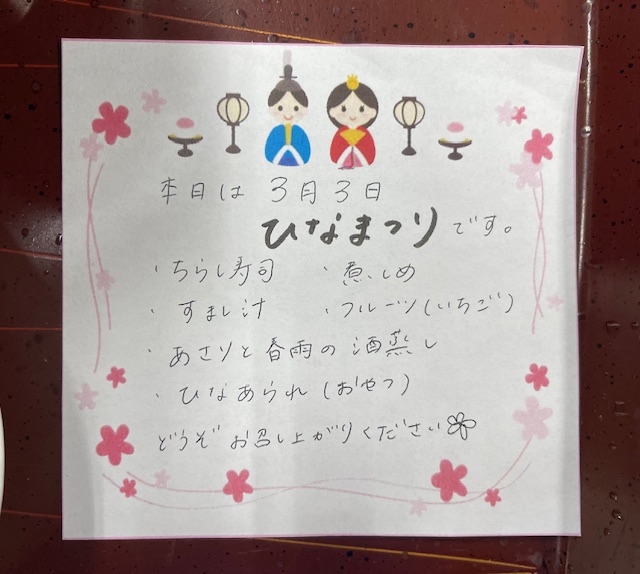 本日は 3月3日
ひなまつり です。
・ちらし寿司 ・煮しめ
・すまし汁 ・フルーツ(いちご)
・あさりと春雨の酒蒸し
・ひなあられ(おやつ)
どうぞお召し上がりください